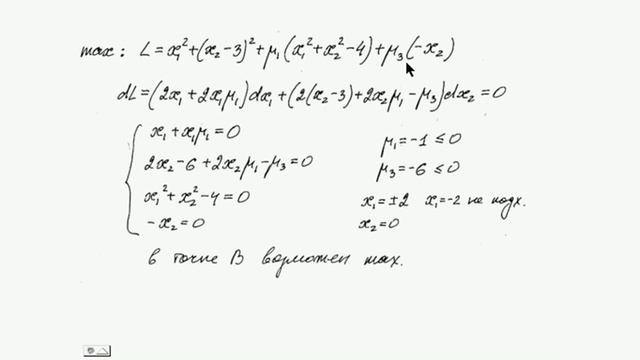 max: L = x₁² + (x₂ - 3)² + μ₁(x₁² + x₂² - 4) + μ₃(-x₂)
dL = (2x₁ + 2x₁μ₁)dx₁ + (2(x₂ - 3) + 2x₂μ₁ - μ₃)dx₂ = 0
x₁ + x₁μ₁ = 0 μ₁ = -1 ≤ 0
2x₂ - 6 + 2x₂μ₁ - μ₃ = 0 μ₃ = -6 ≤ 0
x₁² + x₂² - 4 = 0 x₁ = ±2 x₁ = -2 не подх.
-x₂ = 0 x₂ = 0
в точке B возможен max.